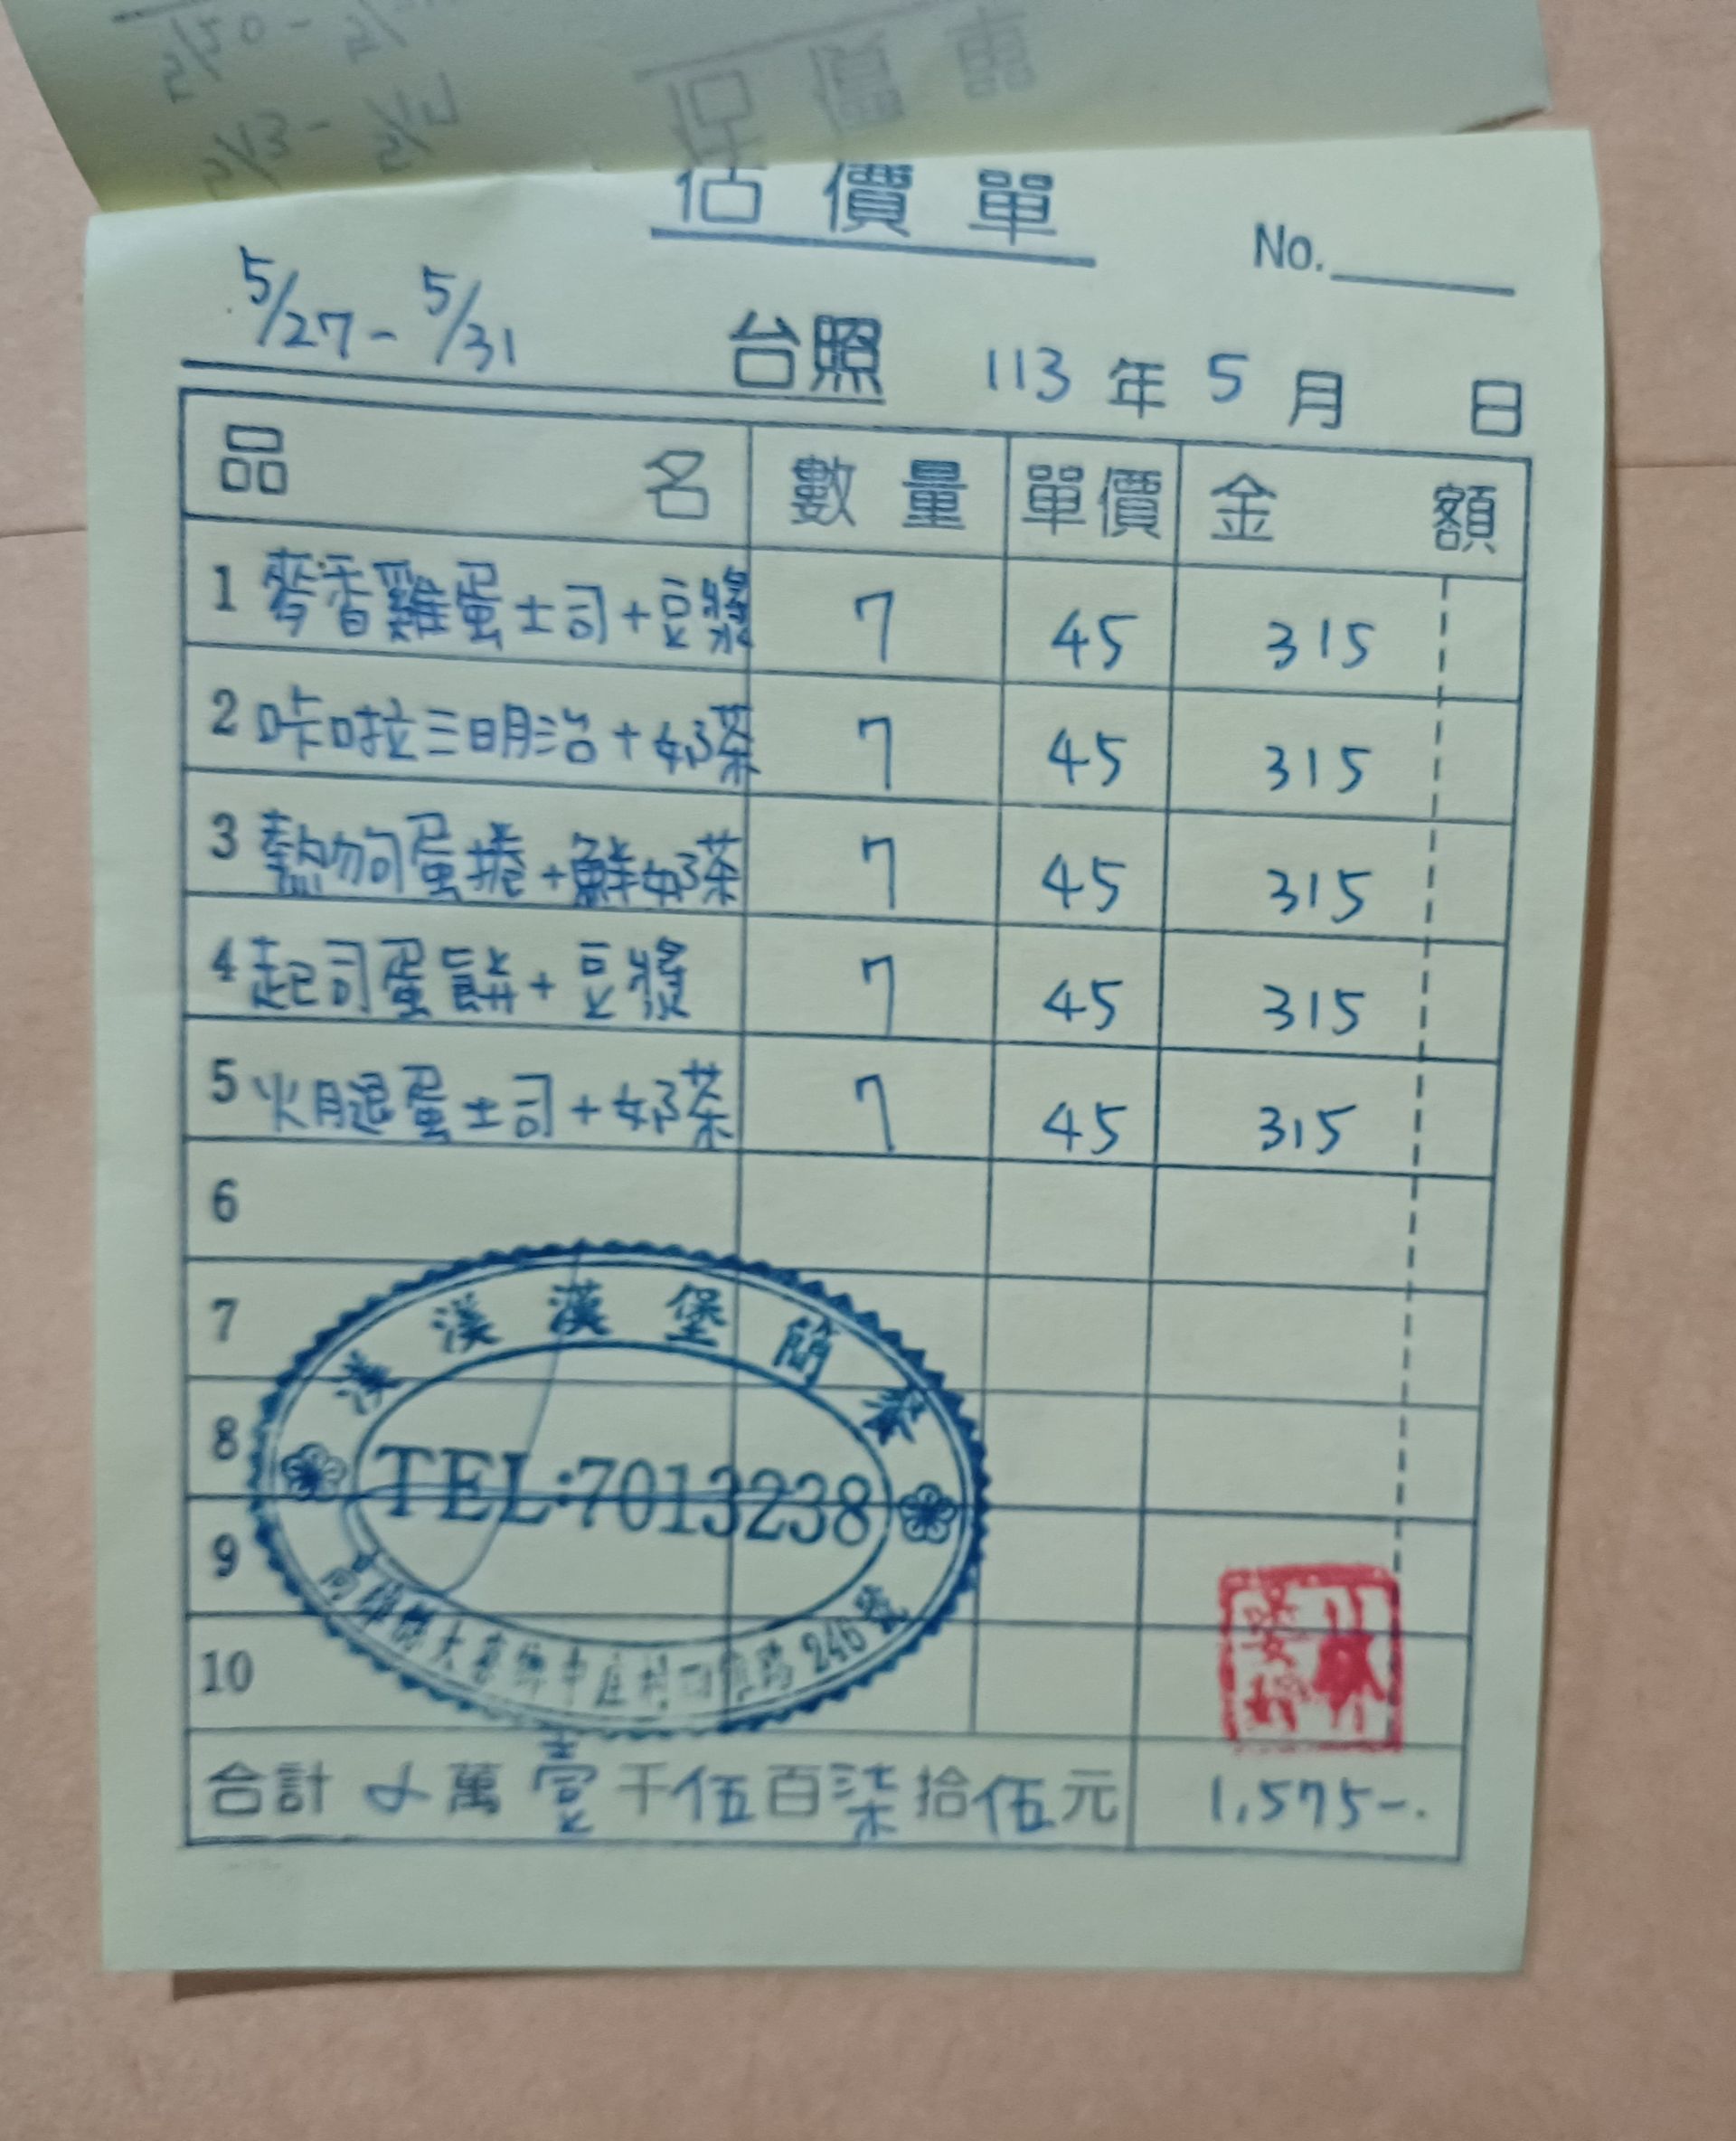 估價單
No.
5/27-5/31 台照 113年5月 日
品名 數量 單價 金額
1 麥香雞蛋土司+豆漿 7 45 315
2 咔啦三明治+奶茶 7 45 315
3 熱狗蛋捲+鮮奶茶 7 45 315
4 起司蛋餅+豆漿 7 45 315
5 火腿蛋土司+奶茶 7 45 315
6
7
8
9
10
漢漢漢堡簡餐
TEL:7013238
高雄縣大寮鄉中庄村四維路246號
合計 萬壹千伍百柒拾伍元 1,575-.